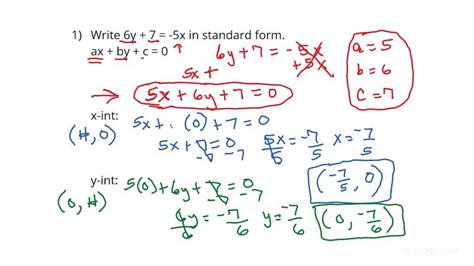 1) Write 6y + 7 = -5x in standard form.
ax + by + c = 0
6y + 7 = -5x
5x + +5x
→ 5x + 6y + 7 = 0
a = 5
b = 6
c = 7
x-int:
(#, 0)
5x + (0) + 7 = 0
5x + 7 = 0
-7 -7
5x/5 = -7/5 x = -7/5
(-7/5, 0)
y-int:
(0, #)
5(0) + 6y + 7 = 0
-7 -7
6y/6 = -7/6 y = -7/6
(0, -7/6)